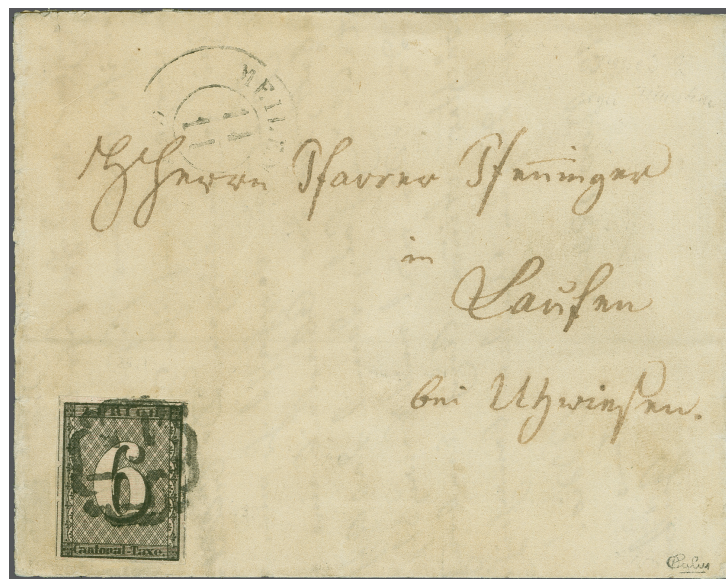 MEIL
HHerrn Pfarrer Pfenninger
in
Laufen
bei Uhwiesen.
ZÜRICH
6
Cantonal-Taxe.